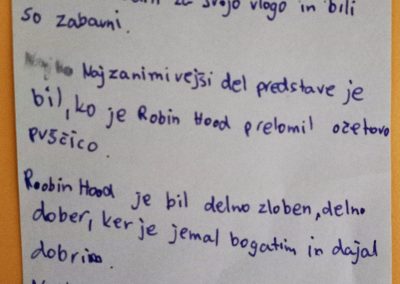 za svojo vlogo in bili
so zabavni.
Najzanimivejši del predstave je
bil, ko je Robin Hood prelomil očetovo
puščico.
Roobin Hood je bil delno zloben, delno
dober, ker je jemal bogatim in dajal
dobrim.